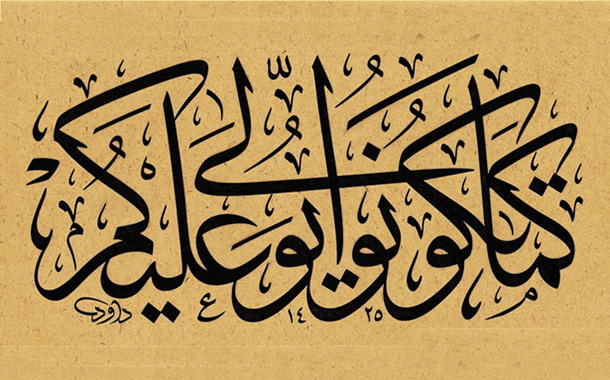 كَمَا تَكُونُوا يُوَلَّى عَلَيْكُمْ
١٤٢٥